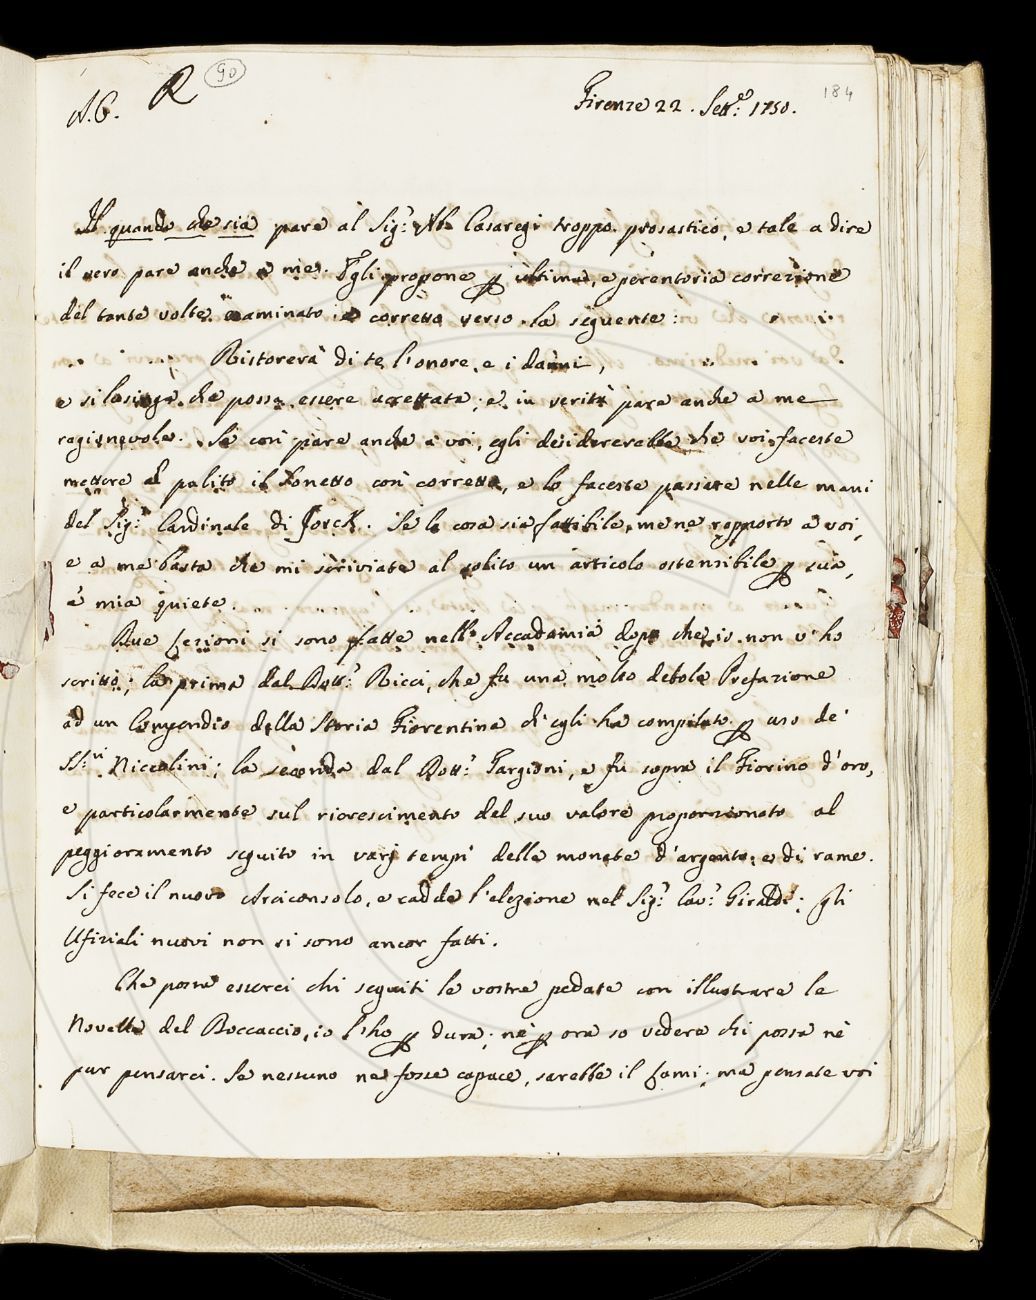 A.C. R 90 Firenze 22. Sett.e 1750. 184
Il quando che sia pare al Sig.r Ab. Casaregi troppo prosastico, e tale a dire
il vero pare anche a me. Egli propone p ultima, e perentoria correzione
del tante volte esaminato, e corretto verso la seguente:
Ristorerà di te l'onore, e i danni,
e si lusinga, che possa essere accettata; e in verità pare anche a me
ragionevole. Se così pare anche a voi, egli desidererebbe che voi faceste
mettere al pulito il Sonetto così corretto, e lo faceste passare nelle mani
del Sig.r Cardinale di Jorck. Se la cosa sia fattibile, me ne rapporto a voi,
e a me basta che mi scriviate al solito un articolo ostensibile p sua,
e mia quiete.
Due Lezioni si sono fatte nell'Accademia dopo che io non v'ho
scritto; la prima dal Dott.r Ricci, che fu una molto debole Prefazione
ad un Conpendio della Storia Fiorentina ch'egli ha compilato p uso de'
SS.ri Niccolini; la seconda dal Dott.r Targioni, e fu sopra il Fiorino d'oro,
e particolarmente sul ricrescimento del suo valore proporzionato al
peggioramento seguito in varj tempi delle monete d'argento, e di rame.
Si fece il nuovo Arciconsolo, e cadde l'elezione nel Sig.r Cav.r Giraldi; gli
Ufiziali nuovi non si sono ancor fatti.
Che possa esserci chi seguiti le vostre pedate con illustrare le
Novelle del Boccaccio, io l'ho p dura; nè p ora so vedere chi possa nè
pur pensarci. Se nessuno ne fosse capace, sarebbe il Lami; ma pensate voi